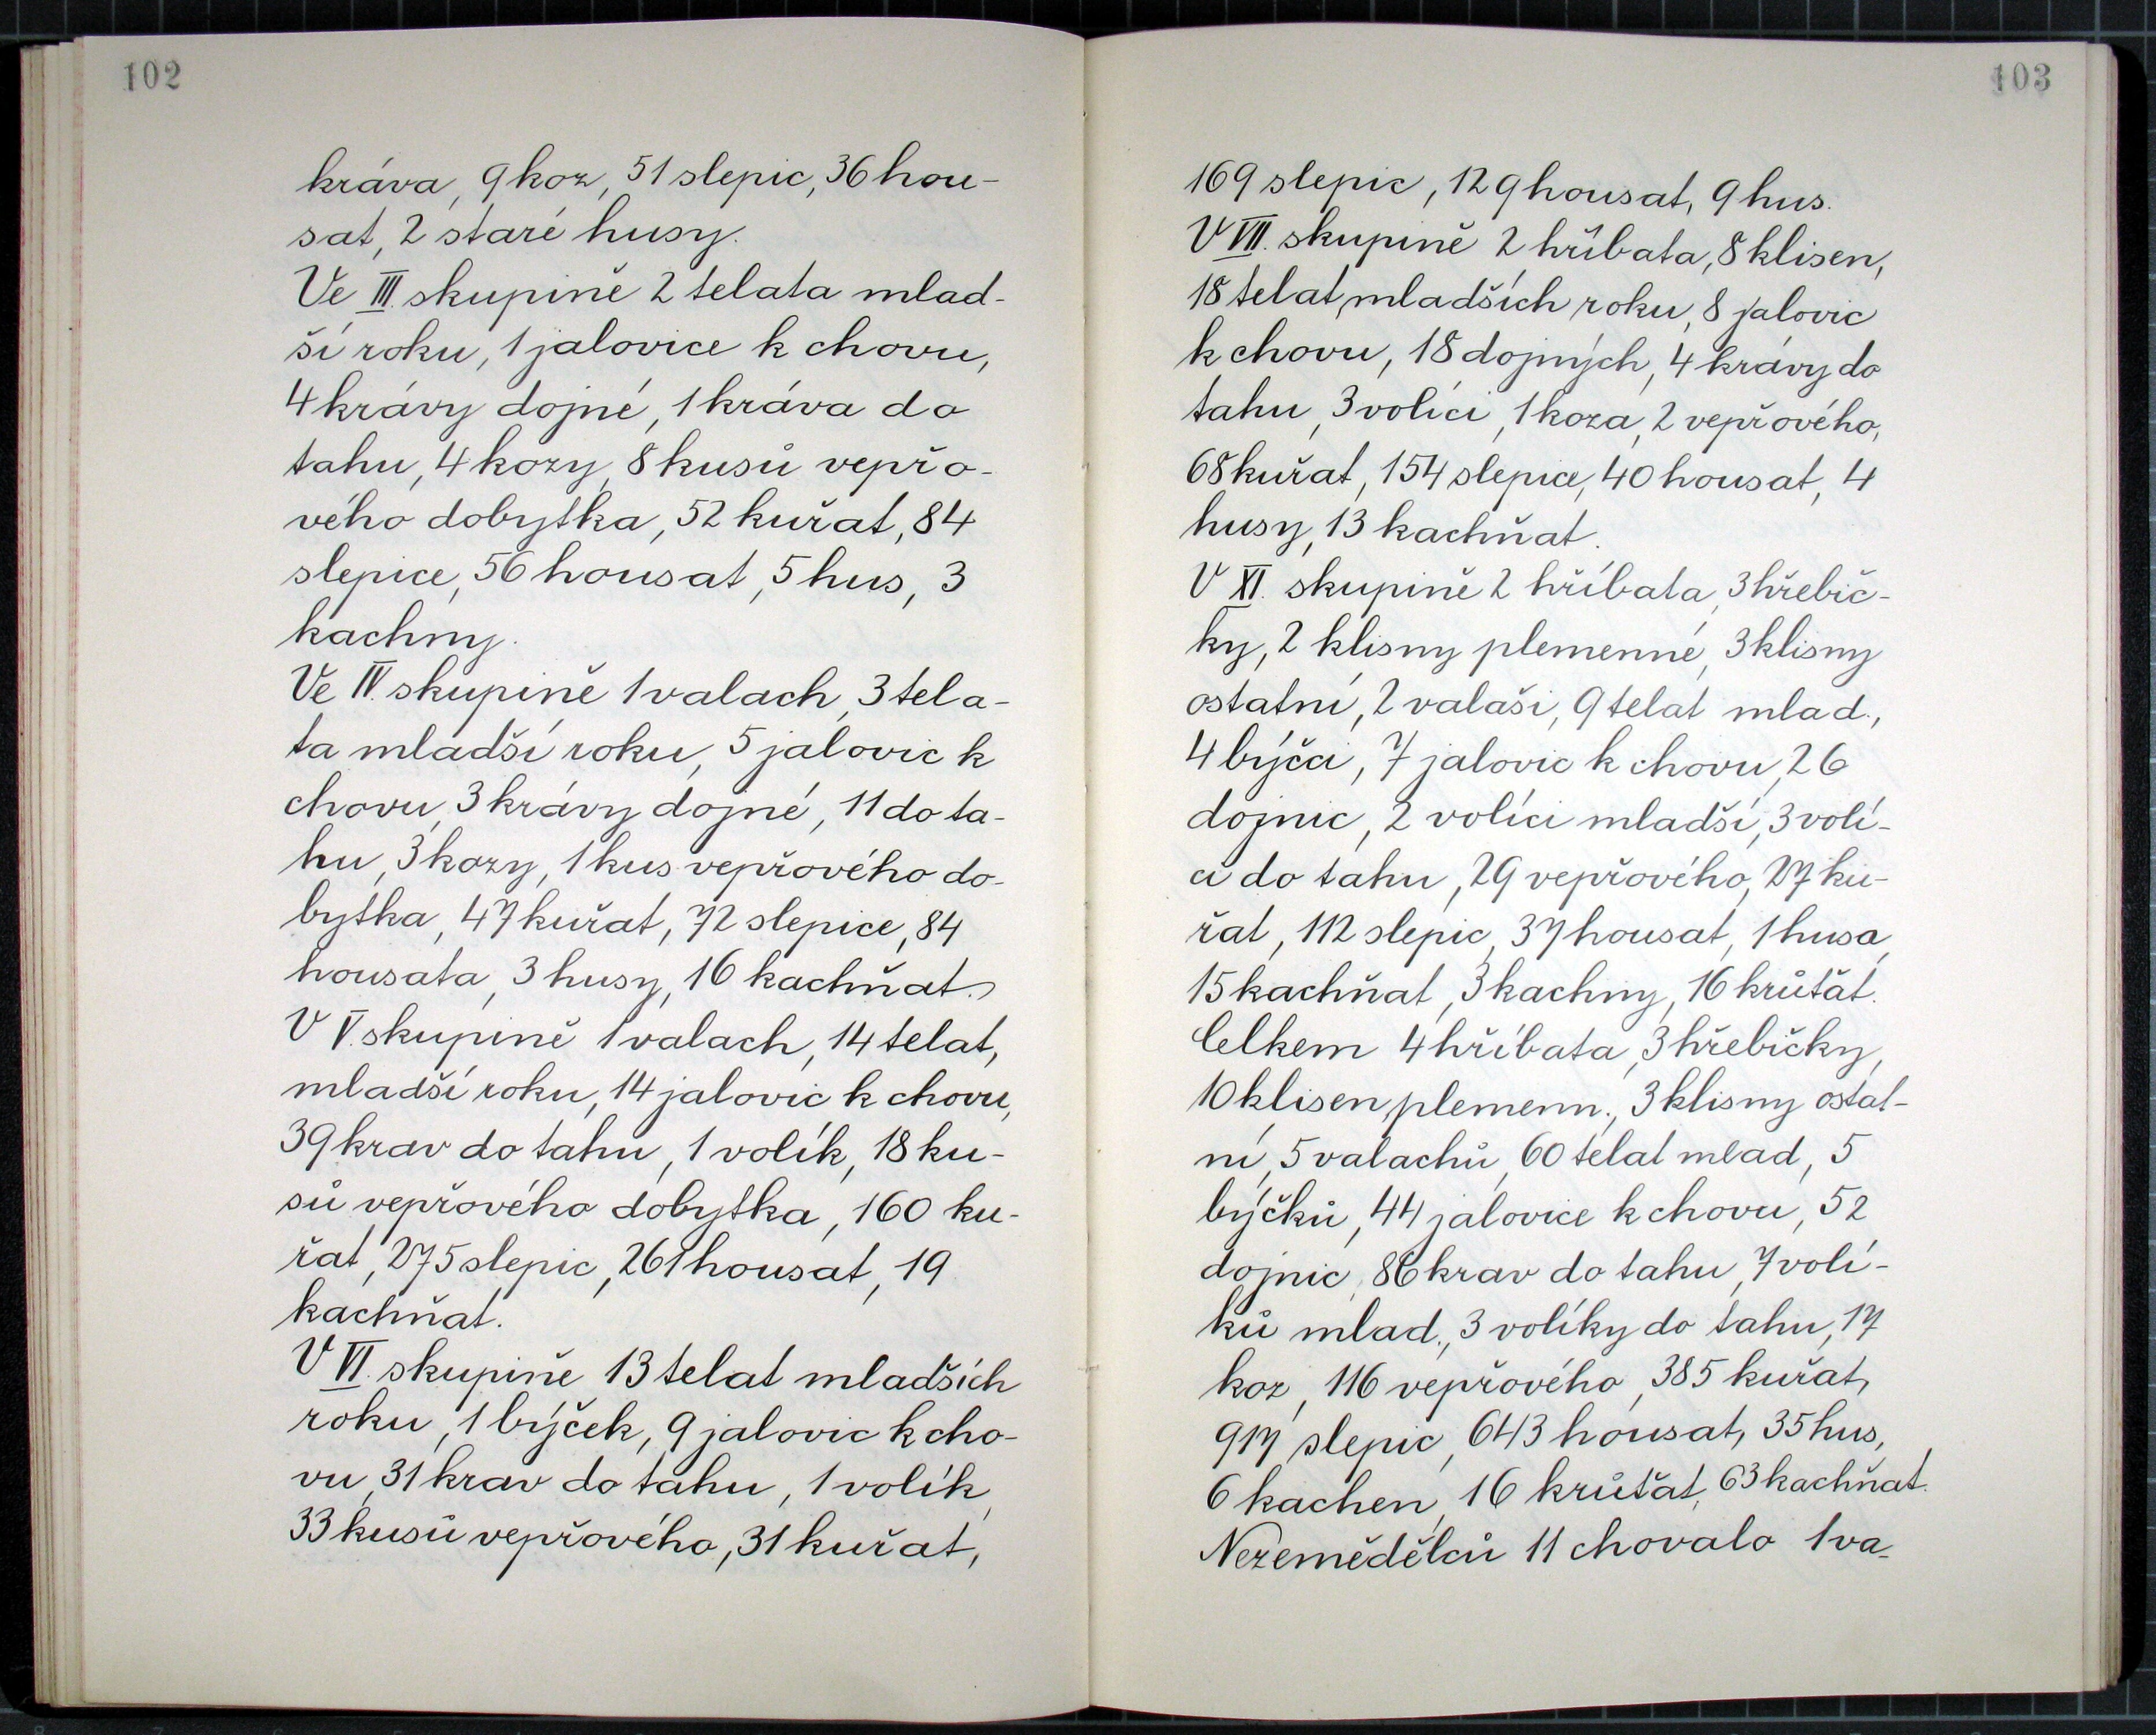 102
kráva, 9 koz, 51 slepic, 36 hou-
sat, 2 staré husy.
Ve III. skupině 2 telata mlad-
ší roku, 1 jalovice k chovu,
4 krávy dojné, 1 kráva do
tahu, 4 kozy, 8 kusů vepřo-
vého dobytka, 52 kuřat, 84
slepice, 56 housat, 5 hus, 3
kachny.
Ve IV. skupině 1 valach, 3 tela-
ta mladší roku, 5 jalovic k
chovu, 3 krávy dojné, 11 do ta-
hu, 3 kozy, 1 kus vepřového do-
bytka, 47 kuřat, 72 slepice, 84
housata, 3 husy, 16 kachňat.
V V. skupině 1 valach, 14 telat,
mladší roku, 14 jalovic k chovu,
39 krav do tahu, 1 volík, 18 ku-
sů vepřového dobytka, 160 ku-
řat, 275 slepic, 261 housat, 19
kachňat.
V VI. skupině 13 telat mladších
roku, 1 býček, 9 jalovic k cho-
vu, 31 krav do tahu, 1 volík,
33 kusů vepřového, 31 kuřat,
103
169 slepic, 129 housat, 9 hus.
V VII. skupině 2 hříbata, 8 klisen,
18 telat, mladších roku, 8 jalovic
k chovu, 18 dojných, 4 krávy do
tahu, 3 volíci, 1 koza, 2 vepřového,
68 kuřat, 154 slepice, 40 housat, 4
husy, 13 kachňat.
V XI. skupině 2 hříbata, 3 hřebič-
ky, 2 klisny plemenné, 3 klisny
ostatní, 2 valaši, 9 telat mlad.,
4 býčci, 7 jalovic k chovu, 26
dojnic, 2 volíci mladší, 3 volí-
ci do tahu, 29 vepřového, 27 ku-
řat, 112 slepic, 37 housat, 1 husa,
15 kachňat, 3 kachny, 16 krůťat.
Celkem 4 hříbata, 3 hřebičky,
10 klisen plemenn., 3 klisny ostat-
ní, 5 valachů, 60 telat mlad, 5
býčků, 44 jalovice k chovu, 52
dojnic, 86 krav do tahu, 7 volí-
ků mlad., 3 volíky do tahu, 17
koz, 116 vepřového, 385 kuřat,
917 slepic, 643 housat, 35 hus,
6 kachen, 16 krůťat, 63 kachňat.
Nezemědělců 11 chovalo 1 va-